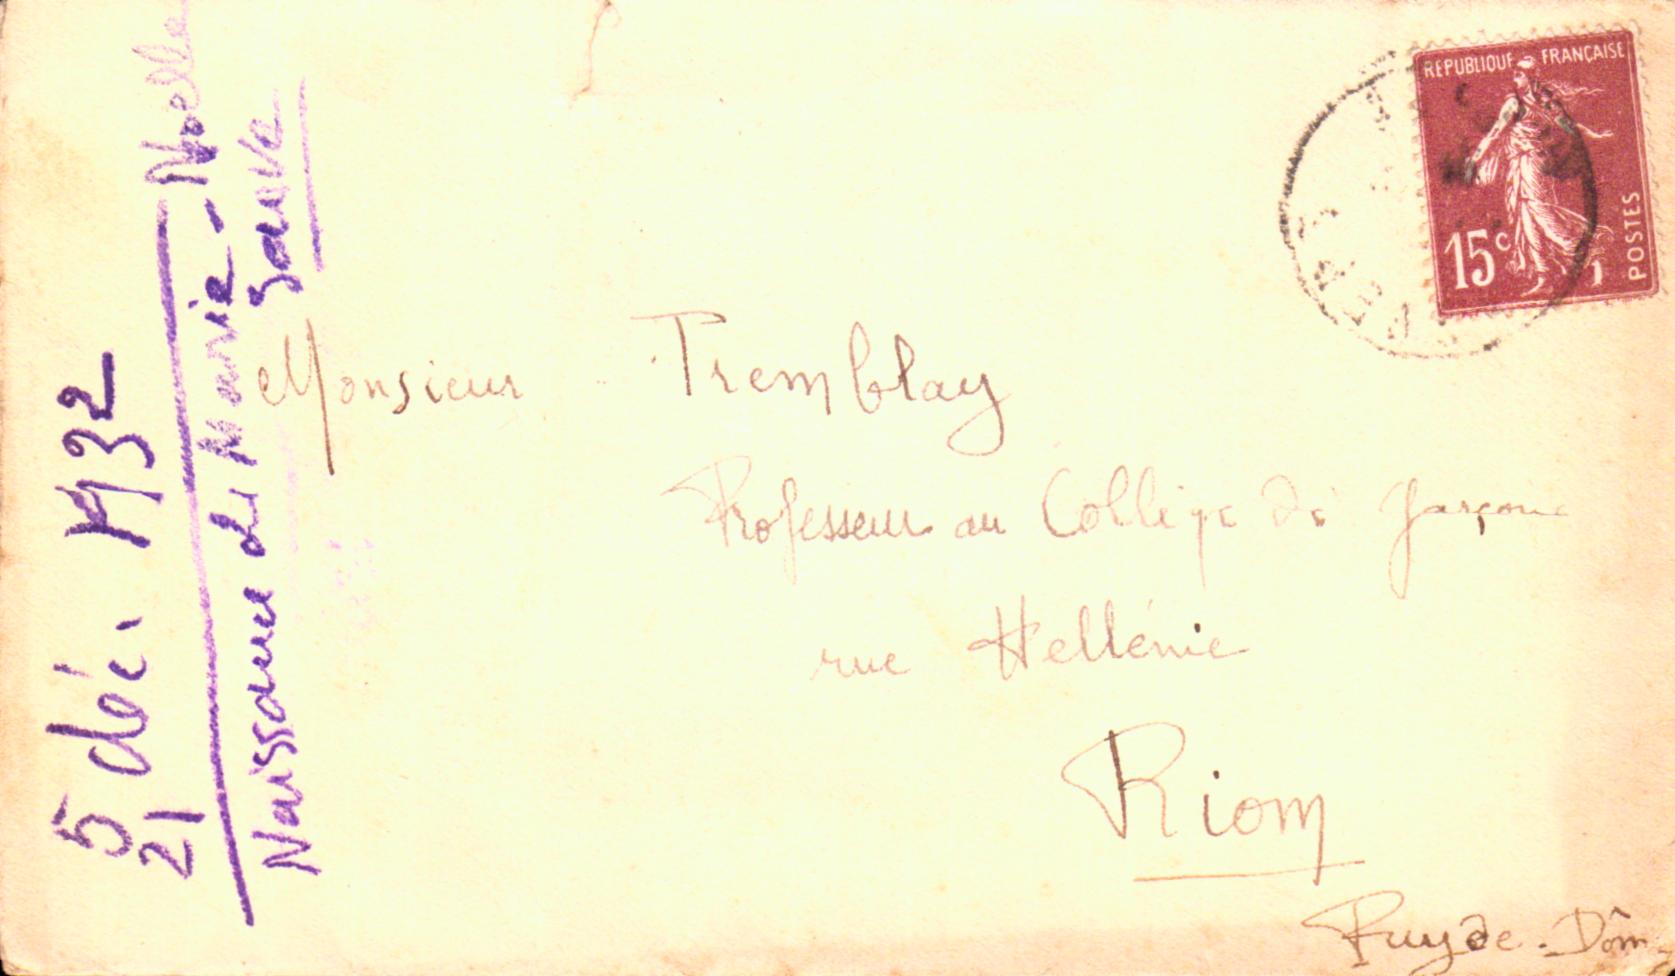 RÉPUBLIQUE FRANÇAISE
15c
POSTES
Monsieur Tremblay
Professeur au Collège de garçons
rue Hellénie
Riom
Puy de-Dôme
5 déc. 1932
21
Naissance de Marie-Noelle